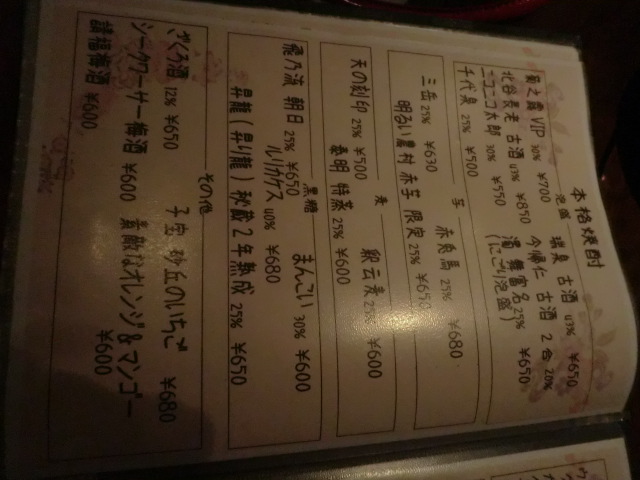 本格焼酎
泡盛
菊之露 VIP 30% ¥700
瑞泉 古酒 43% ¥650
北谷長老 古酒 43% ¥850
今帰仁 古酒 2合 20%
ニコニコ太郎 30% ¥550
舞富名 25% ¥650
千代泉 25% ¥500
(にごり泡盛)
芋
三岳 25% ¥630
赤兎馬 25% ¥680
明るい農村 赤芋 限定 25% ¥650
麦
天の刻印 25% ¥500
卵云麦 25% ¥600
泰明 特蒸 25% ¥600
黒糖
飛乃流 朝日 25% ¥650
まんこい 30% ¥600
ルリカケス 40% ¥680
昇龍(昇り龍) 秘蔵2年熟成 25% ¥650
その他
ざくろ酒 12% ¥650
子宝 砂丘のいちご ¥680
シークワーサー梅酒 ¥600
素敵なオレンジ&マンゴー ¥600
請福梅酒 ¥600